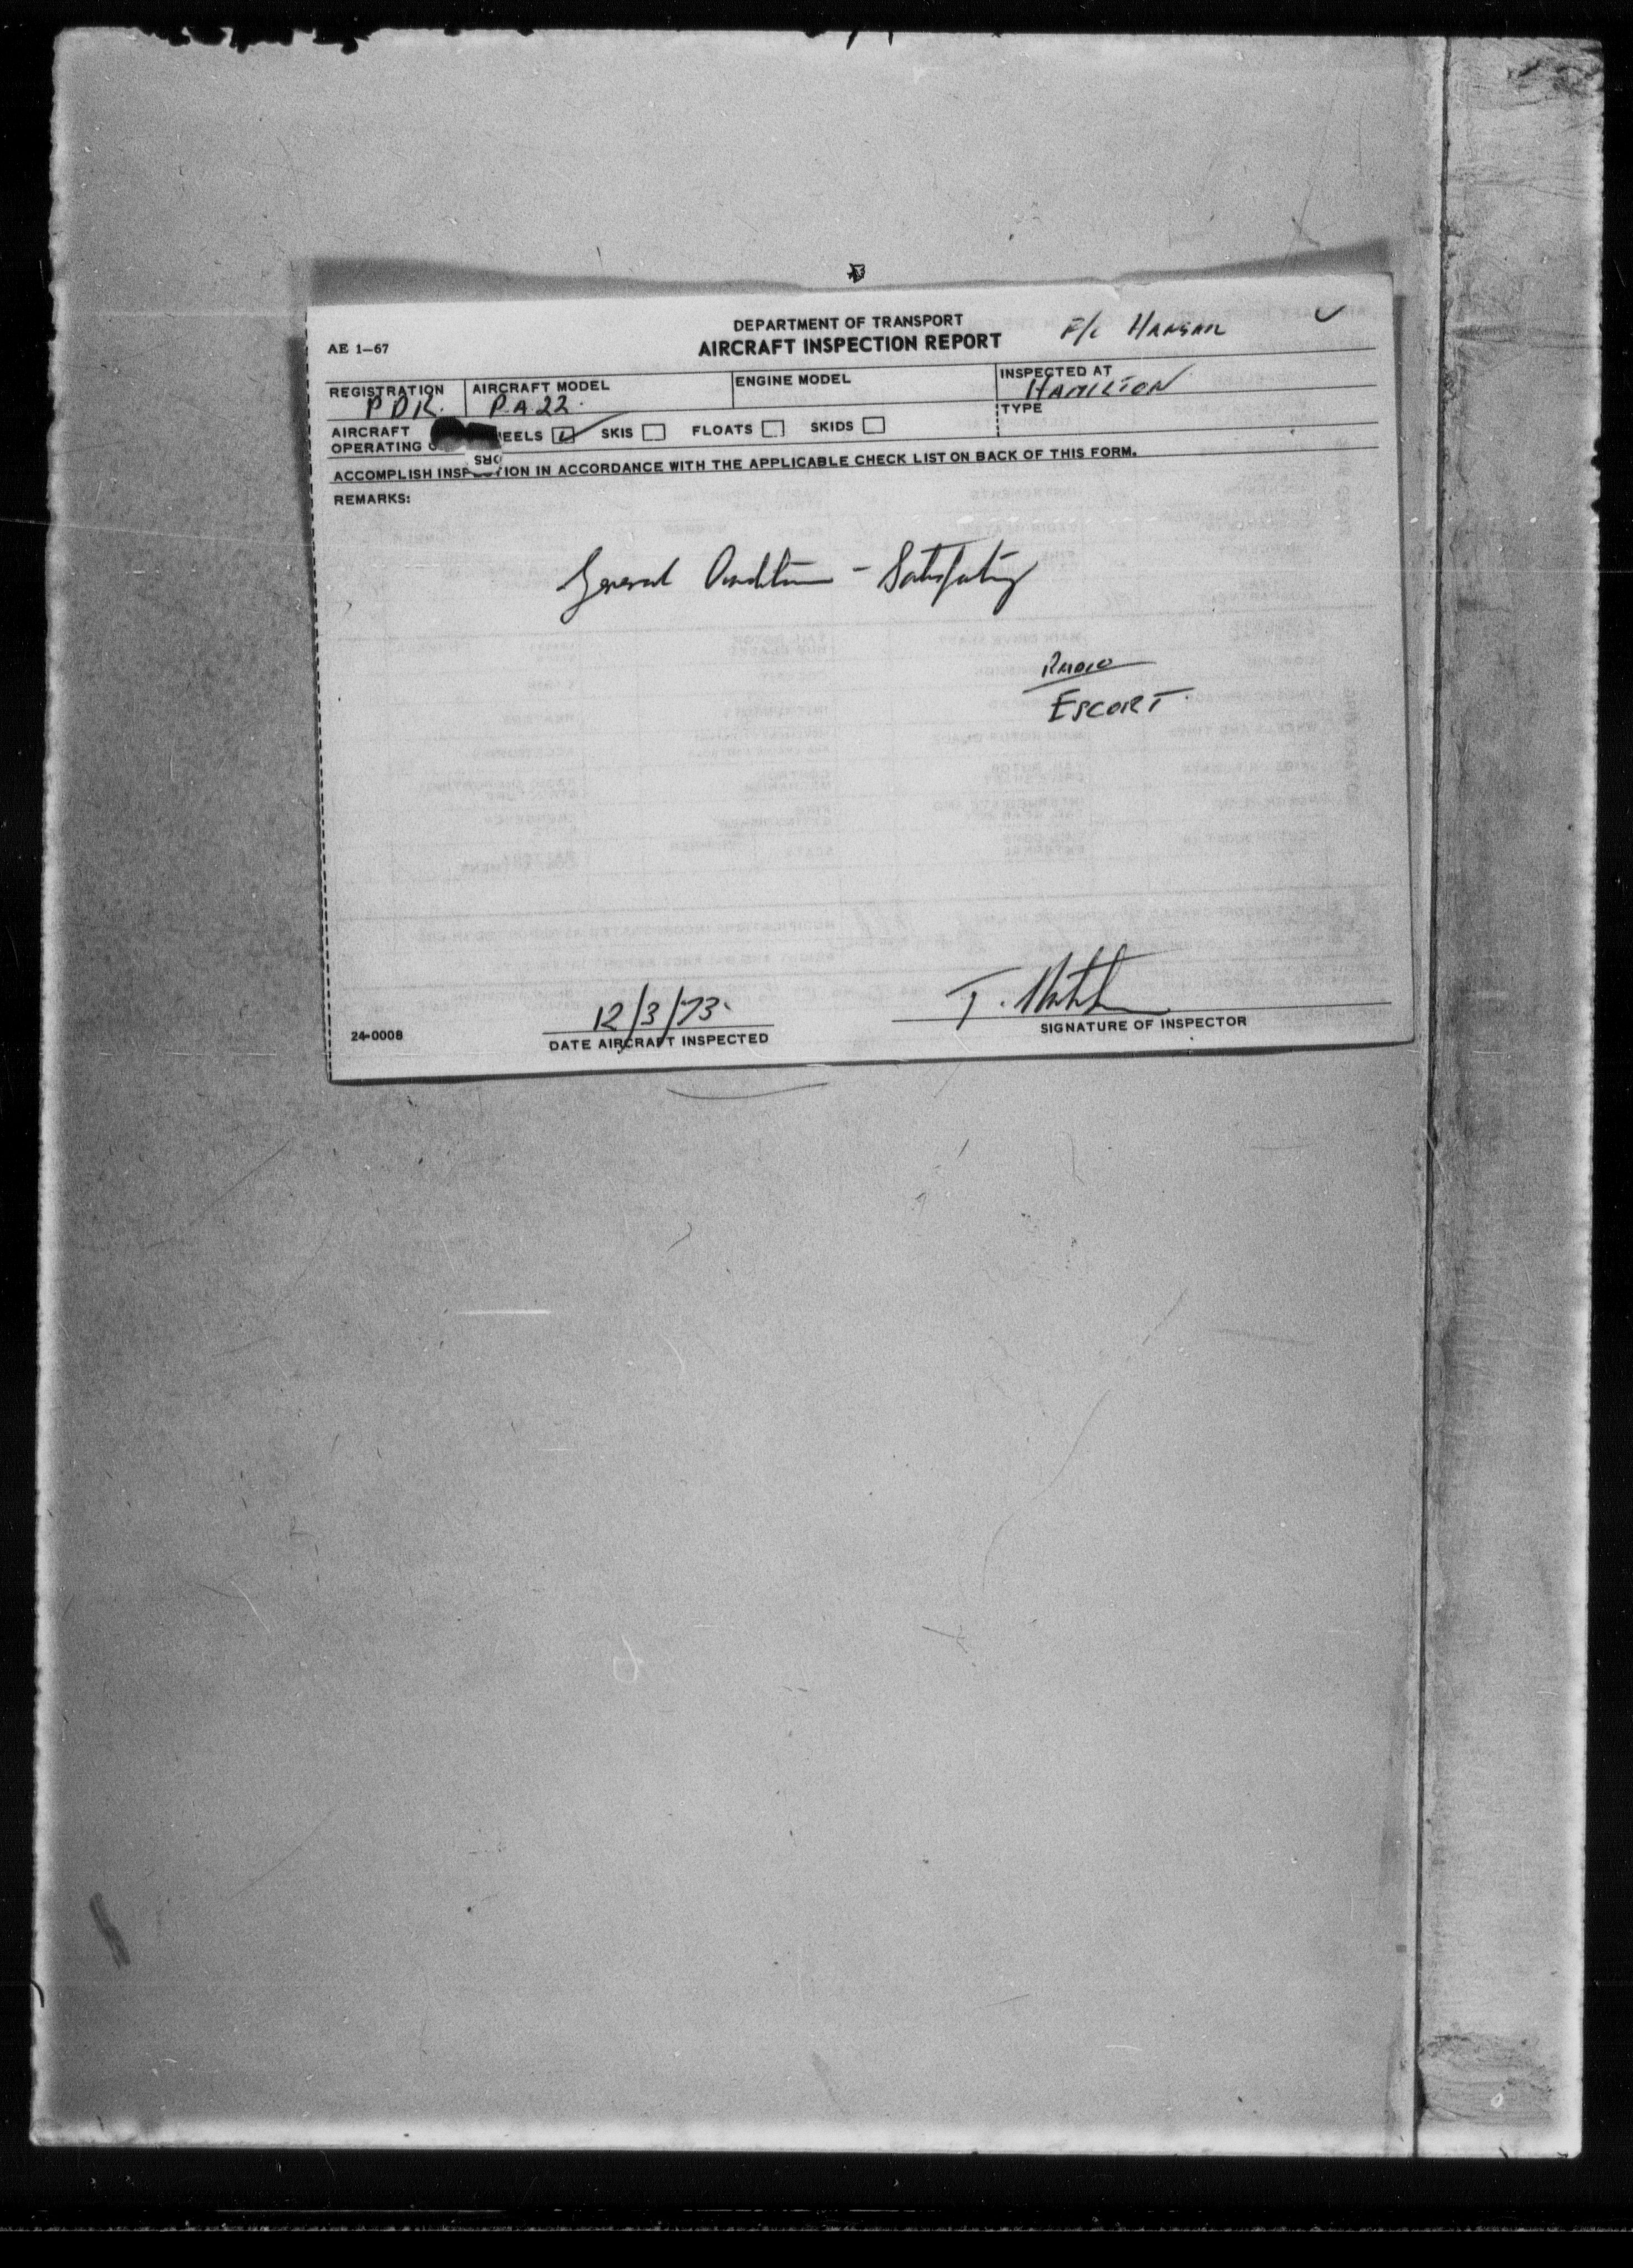 DEPARTMENT OF TRANSPORT
AE 1-67 AIRCRAFT INSPECTION REPORT
REGISTRATION AIRCRAFT MODEL ENGINE MODEL INSPECTED AT
PDR. PA 22. HAMILTON
TYPE
AIRCRAFT
OPERATING EELS SKIS FLOATS SKIDS
ACCOMPLISH INSPECTION IN ACCORDANCE WITH THE APPLICABLE CHECK LIST ON BACK OF THIS FORM.
REMARKS:
General Condition - Satisfactory
Radio
ESCORT
12/3/73. T.
24-0008 DATE AIRCRAFT INSPECTED SIGNATURE OF INSPECTOR